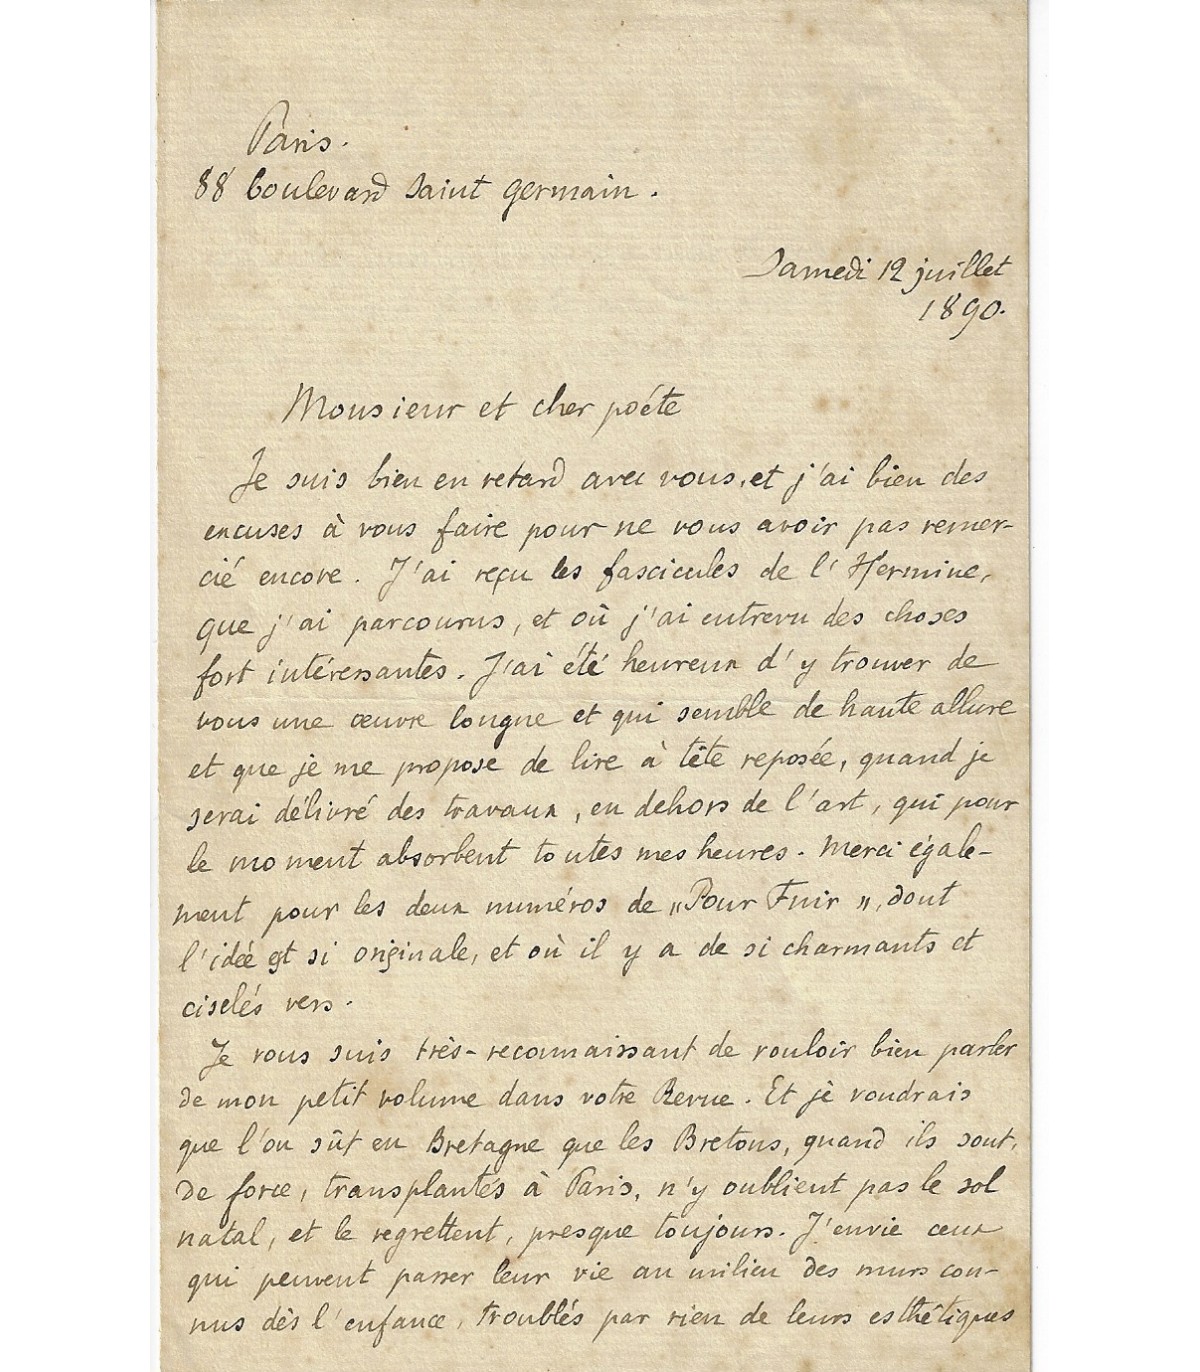 Paris.
88 boulevard Saint Germain.
Samedi 12 juillet
1890.
Monsieur et cher poéte
Je suis bien en retard avec vous, et j'ai bien des
excuses à vous faire pour ne vous avoir pas remer-
cié encore. J'ai reçu les fascicules de l'Hermine,
que j'ai parcourus, et où j'ai entrevu des choses
fort intéressantes. J'ai été heureux d'y trouver de
vous une œuvre longue et qui semble de haute allure
et que je me propose de lire à tête reposée, quand je
serai délivré des travaux, en dehors de l'art, qui pour
le moment absorbent toutes mes heures. Merci égale-
ment pour les deux numéros de "Pour Fuir", dont
l'idée est si originale, et où il y a de si charmants et
ciselés vers.
Je vous suis très-reconnaissant de vouloir bien parler
de mon petit volume dans votre Revue. Et je voudrais
que l'on sût en Bretagne que les Bretons, quand ils sont,
de force, transplantés à Paris, n'y oublient pas le sol
natal, et le regrettent, presque toujours. J'envie ceux
qui peuvent passer leur vie au milieu des murs con-
nus dès l'enfance, troublés par rien de leurs esthétiques